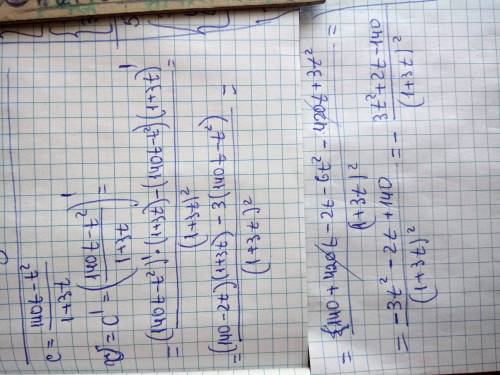 c = (140t - t²)/(1+3t)
v = C' = ((140t - t²)/(1+3t))' =
= ((140t - t²)' · (1+3t) - (140t - t²)(1+3t)')/(1+3t)² =
= ((140 - 2t)(1+3t) - 3(140t - t²))/(1+3t)² =
= (140 + 420t - 2t - 6t² - 420t + 3t²)/(1+3t)² =
= (-3t² - 2t + 140)/(1+3t)² = - (3t² + 2t - 140)/(1+3t)²